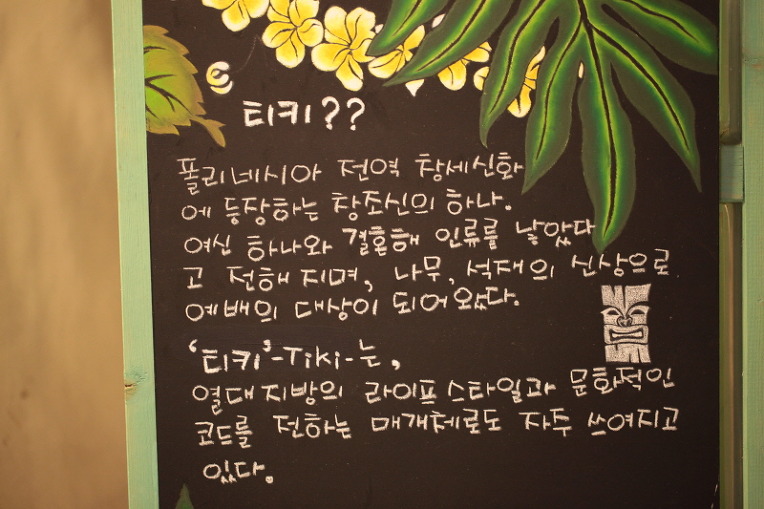 티키??
폴리네시아 전역 창세신화
에 등장하는 창조신의 하나.
여신 하나와 결혼해 인류를 낳았다
고 전해지며, 나무, 석재의 신상으로
예배의 대상이 되어왔다.
'티키'-Tiki-는,
열대지방의 라이프스타일과 문화적인
코드를 전하는 매개체로도 자주 쓰여지고
있다.